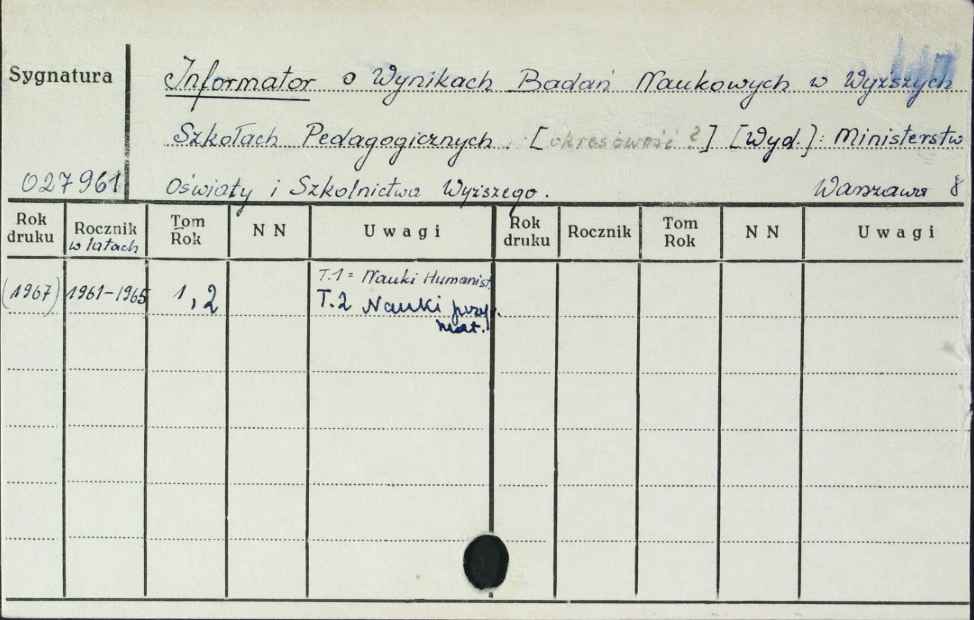 Sygnatura
Informator o Wynikach Badań Naukowych w Wyższych
Szkołach Pedagogicznych. [okresowość?] [Wyd.]: Ministerstw
027961 Oświaty i Szkolnictwa Wyższego. Warszawa 8
Rok druku Rocznik w latach Tom Rok NN Uwagi Rok druku Rocznik Tom Rok NN Uwagi
(1967) 1961-1965 1, 2 T.1 = Nauki Humanist.
T.2 Nauki przy.
mat.